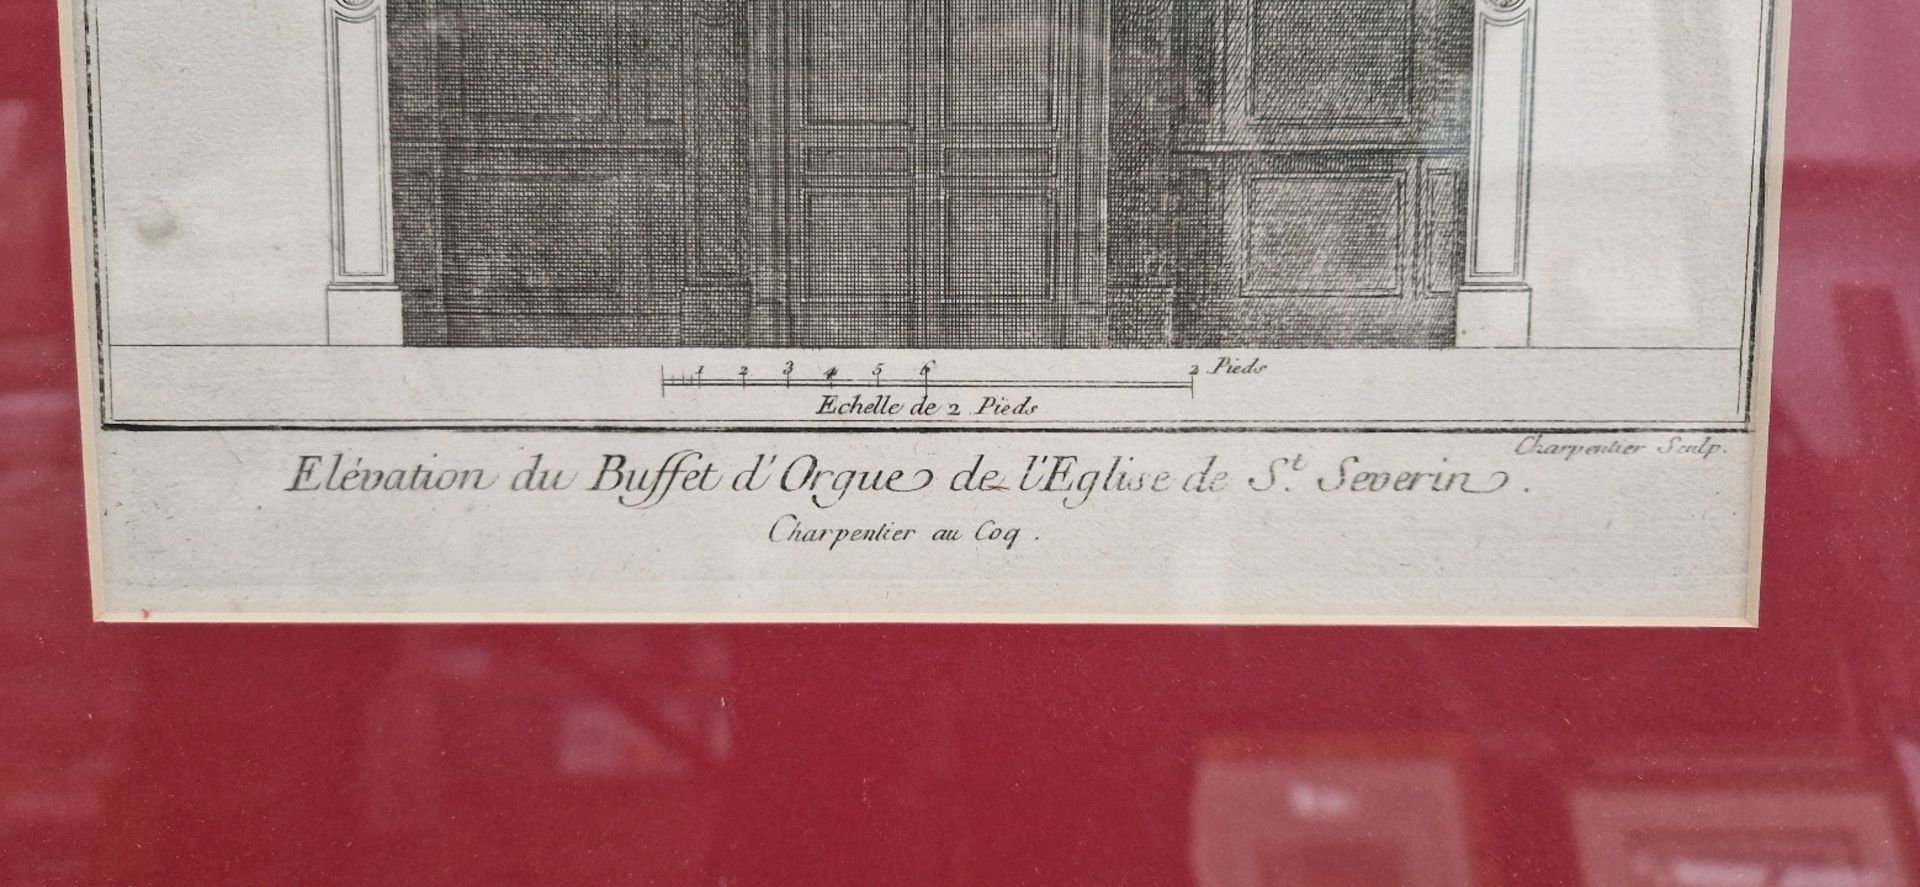 1 2 3 4 5 6 2 Pieds
Echelle de 2 Pieds
Charpentier Sculp.
Elévation du Buffet d'Orgue de l'Eglise de St. Severin.
Charpentier au Coq.